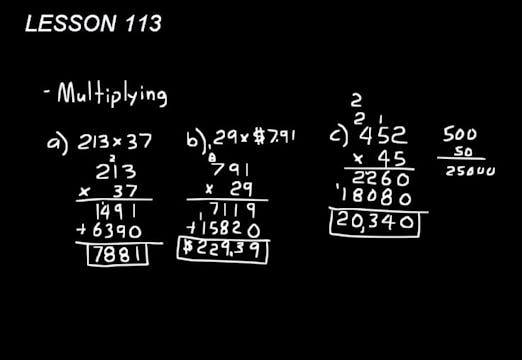 LESSON 113
- Multiplying
a) 213 x 37
2
213
x 37
1491
+6390
7881
b) .29 x $7.91
791
x 29
7119
+15820
$229.39
2
2 1
c) 452
x 45
2260
18080
20,340
500
50
25000